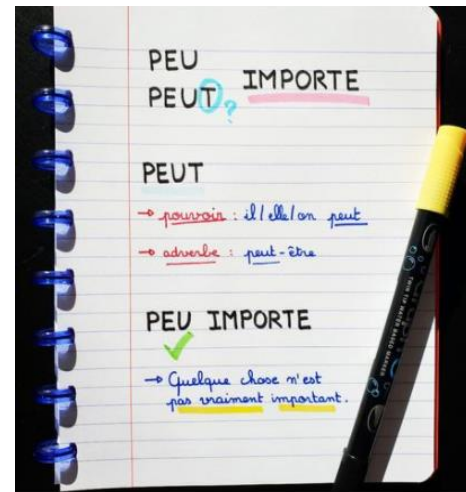 PEU
PEUT? IMPORTE
PEUT
→ pouvoir : il/elle/on peut
→ adverbe : peut-être
PEU IMPORTE
→ Quelque chose n'est
pas vraiment important.
TWIN TIP WATER BASED MARKER